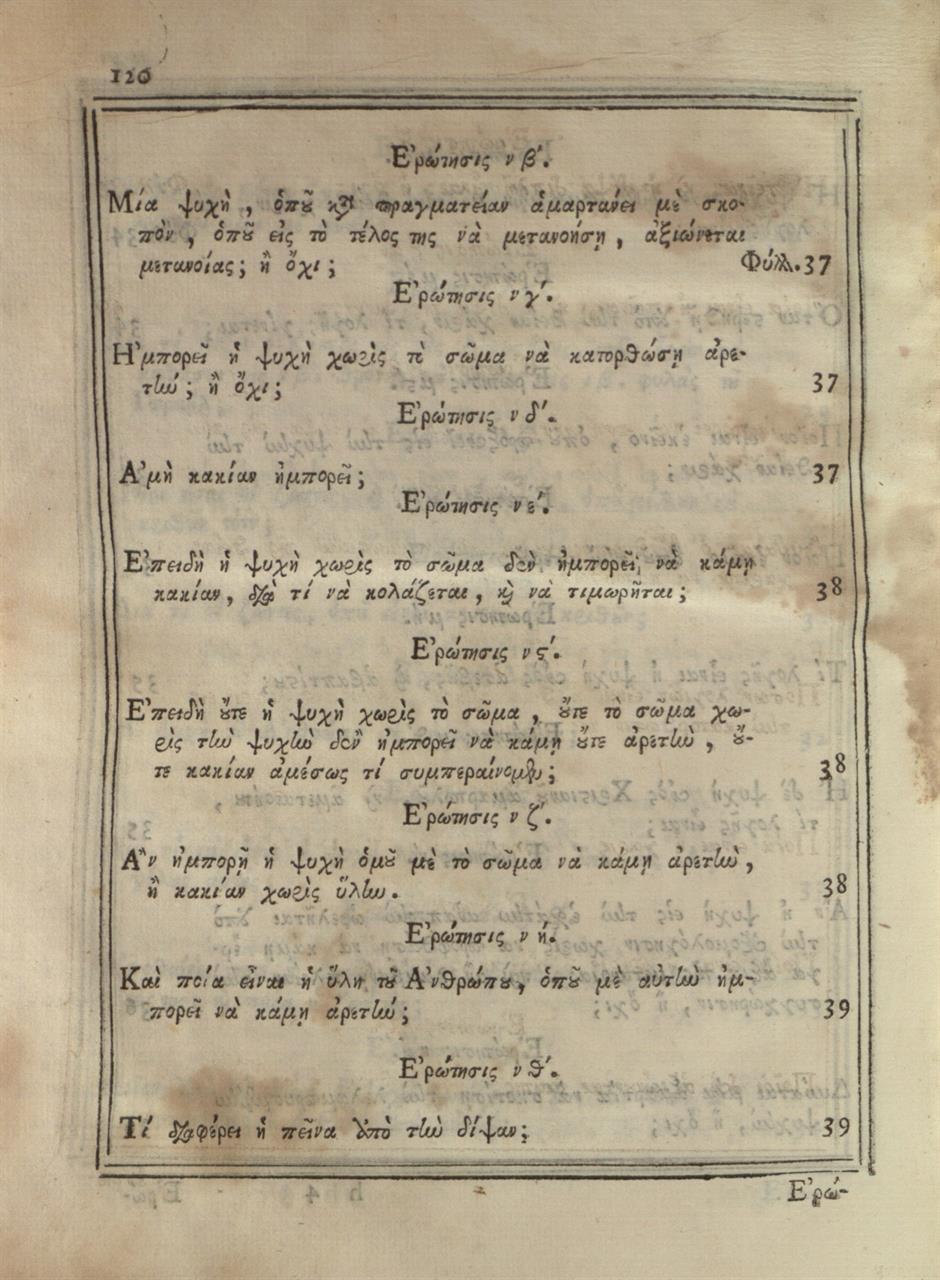 126
Ἐρώτησις νβ΄.
Μία ψυχὴ, ὁποῦ κατὰ πραγματείαν ἁμαρτάνει μὲ σκο-
πὸν, ὁποῦ εἰς τὸ τέλος της νὰ μετανοήσῃ, ἀξιώνεται
μετανοίας; ἢ ὄχι; Φύλλ. 37
Ἐρώτησις νγ΄.
Ἠμπορεῖ ἡ ψυχὴ χωρὶς τὸ σῶμα νὰ κατορθώσῃ ἀρε-
τὴν; ἢ ὄχι; 37
Ἐρώτησις νδ΄.
Ἀμὴ κακίαν ἠμπορεῖ; 37
Ἐρώτησις νε΄.
Ἐπειδὴ ἡ ψυχὴ χωρὶς τὸ σῶμα δὲν ἠμπορεῖ, νὰ κάμῃ
κακίαν, διὰ τί νὰ κολάζεται, καὶ νὰ τιμωρῆται; 38
Ἐρώτησις νϛ΄.
Ἐπειδὴ οὔτε ἡ ψυχὴ χωρὶς τὸ σῶμα, οὔτε τὸ σῶμα χω-
ρὶς τὴν ψυχὴν δὲν ἠμπορεῖ νὰ κάμῃ οὔτε ἀρετὴν, οὔ-
τε κακίαν ἀμέσως τί συμπεραίνομεν; 38
Ἐρώτησις νζ΄.
Ἂν ἠμπορῇ ἡ ψυχὴ ὁμοῦ μὲ τὸ σῶμα νὰ κάμῃ ἀρετὴν,
ἢ κακίαν χωρὶς ὕλην. 38
Ἐρώτησις νή.
Καὶ ποία εἶναι ἡ ὕλη τοῦ Ἀνθρώπου, ὁποῦ μὲ αὐτὴν ἠμ-
πορεῖ νὰ κάμῃ ἀρετὴν; 39
Ἐρώτησις νθ΄.
Τί διαφέρει ἡ πεῖνα ἀπὸ τὴν δίψαν; 39
Ἐρώ-